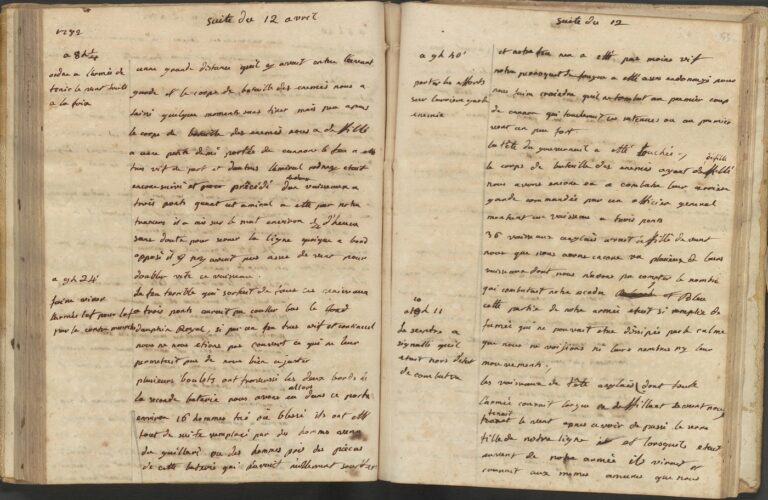 suite du 12 avril
1782
a 8h 1/4
ordre a l'armée de
tenir le vent tout
a la fois
une grande distance quil y avoit entre l'avant
garde et le corps de bataille des ennemis nous a
laissé quelque moments sans tirer mais peu apres
le corps de bataille des ennemis nous a défillé
a une petite demi portée de cannon le feu a été
tres vif de part et d'autres l'amiral rodney etoit
encore suivi et précédé d'un vaisseau a
trois ponts quant cet amiral a été par notre
travers il a mis sur le mat environ d'heure
sans doute pour serrer la ligne quoique a bord
opposé il ny avoit pas assez de vent pour
doubler vite ce vaisseau.
a 9h 24'
faire virer
l'armée lof pour lof
par la contremarche
le feu terrible qui sortoit de tous ces vaisseaux
a trois ponts auroit pu couler bas le
dauphin Royal, si par un feu tres vif et continuel
nous ne nous etions pas couvert ce qui ne leur
permettoit pas de nous bien ajuster
plusieurs boulets ont traversé les deux bords de
la seconde batterie nous avons eu dans ce poste
allors
environ 16 hommes tué ou blessé ils ont été
tout de suite remplacé par des hommes
du guillard ou des hommes pris des pièces
de cette batterie qui pouvoit nullement
suite du 12
55
a 9h 40'
porter les efforts
sur l'arrière garde
ennemie
et notre feu nen a été pas moins vif
notre a été assez endomagé pour
nous faire craindre quil tombat au premier coup
de cannon qui toucheroit ou au premier
vent un peu fort
la tête du gouvernail a été touchée,
le corps de bataille des ennemis ayant défillé
nous avons encore eu a combatre leur arrière
garde commandée par un officier general
montant un vaisseau a trois ponts
36 vaisseaux anglais avoit défillé devant
nous que nous avons encore vu plusieurs de leurs
vaisseaux dont nous n'avons pu compter le nombre
qui combattoit notre escadre et Bleue
cette partie de notre armée etoit si remplie de
fumée qui ne pouvoit etre dissipée par le calme
que nous ne voijions ni leurs nombre ny leur
mouvements.
10
a h 11
le sceptre a
signallé qu'il
etoit hors d'etat
de combatre
les vaisseaux de tête anglais dont toute
l'armée couroit largue en défillant devant nous
tenoit
le vent apres avoir dépassé le serre
fille de notre ligne et lorsquils etoit
au vent de notre armée ils viroit et
couroit aux mêmes amures que nous